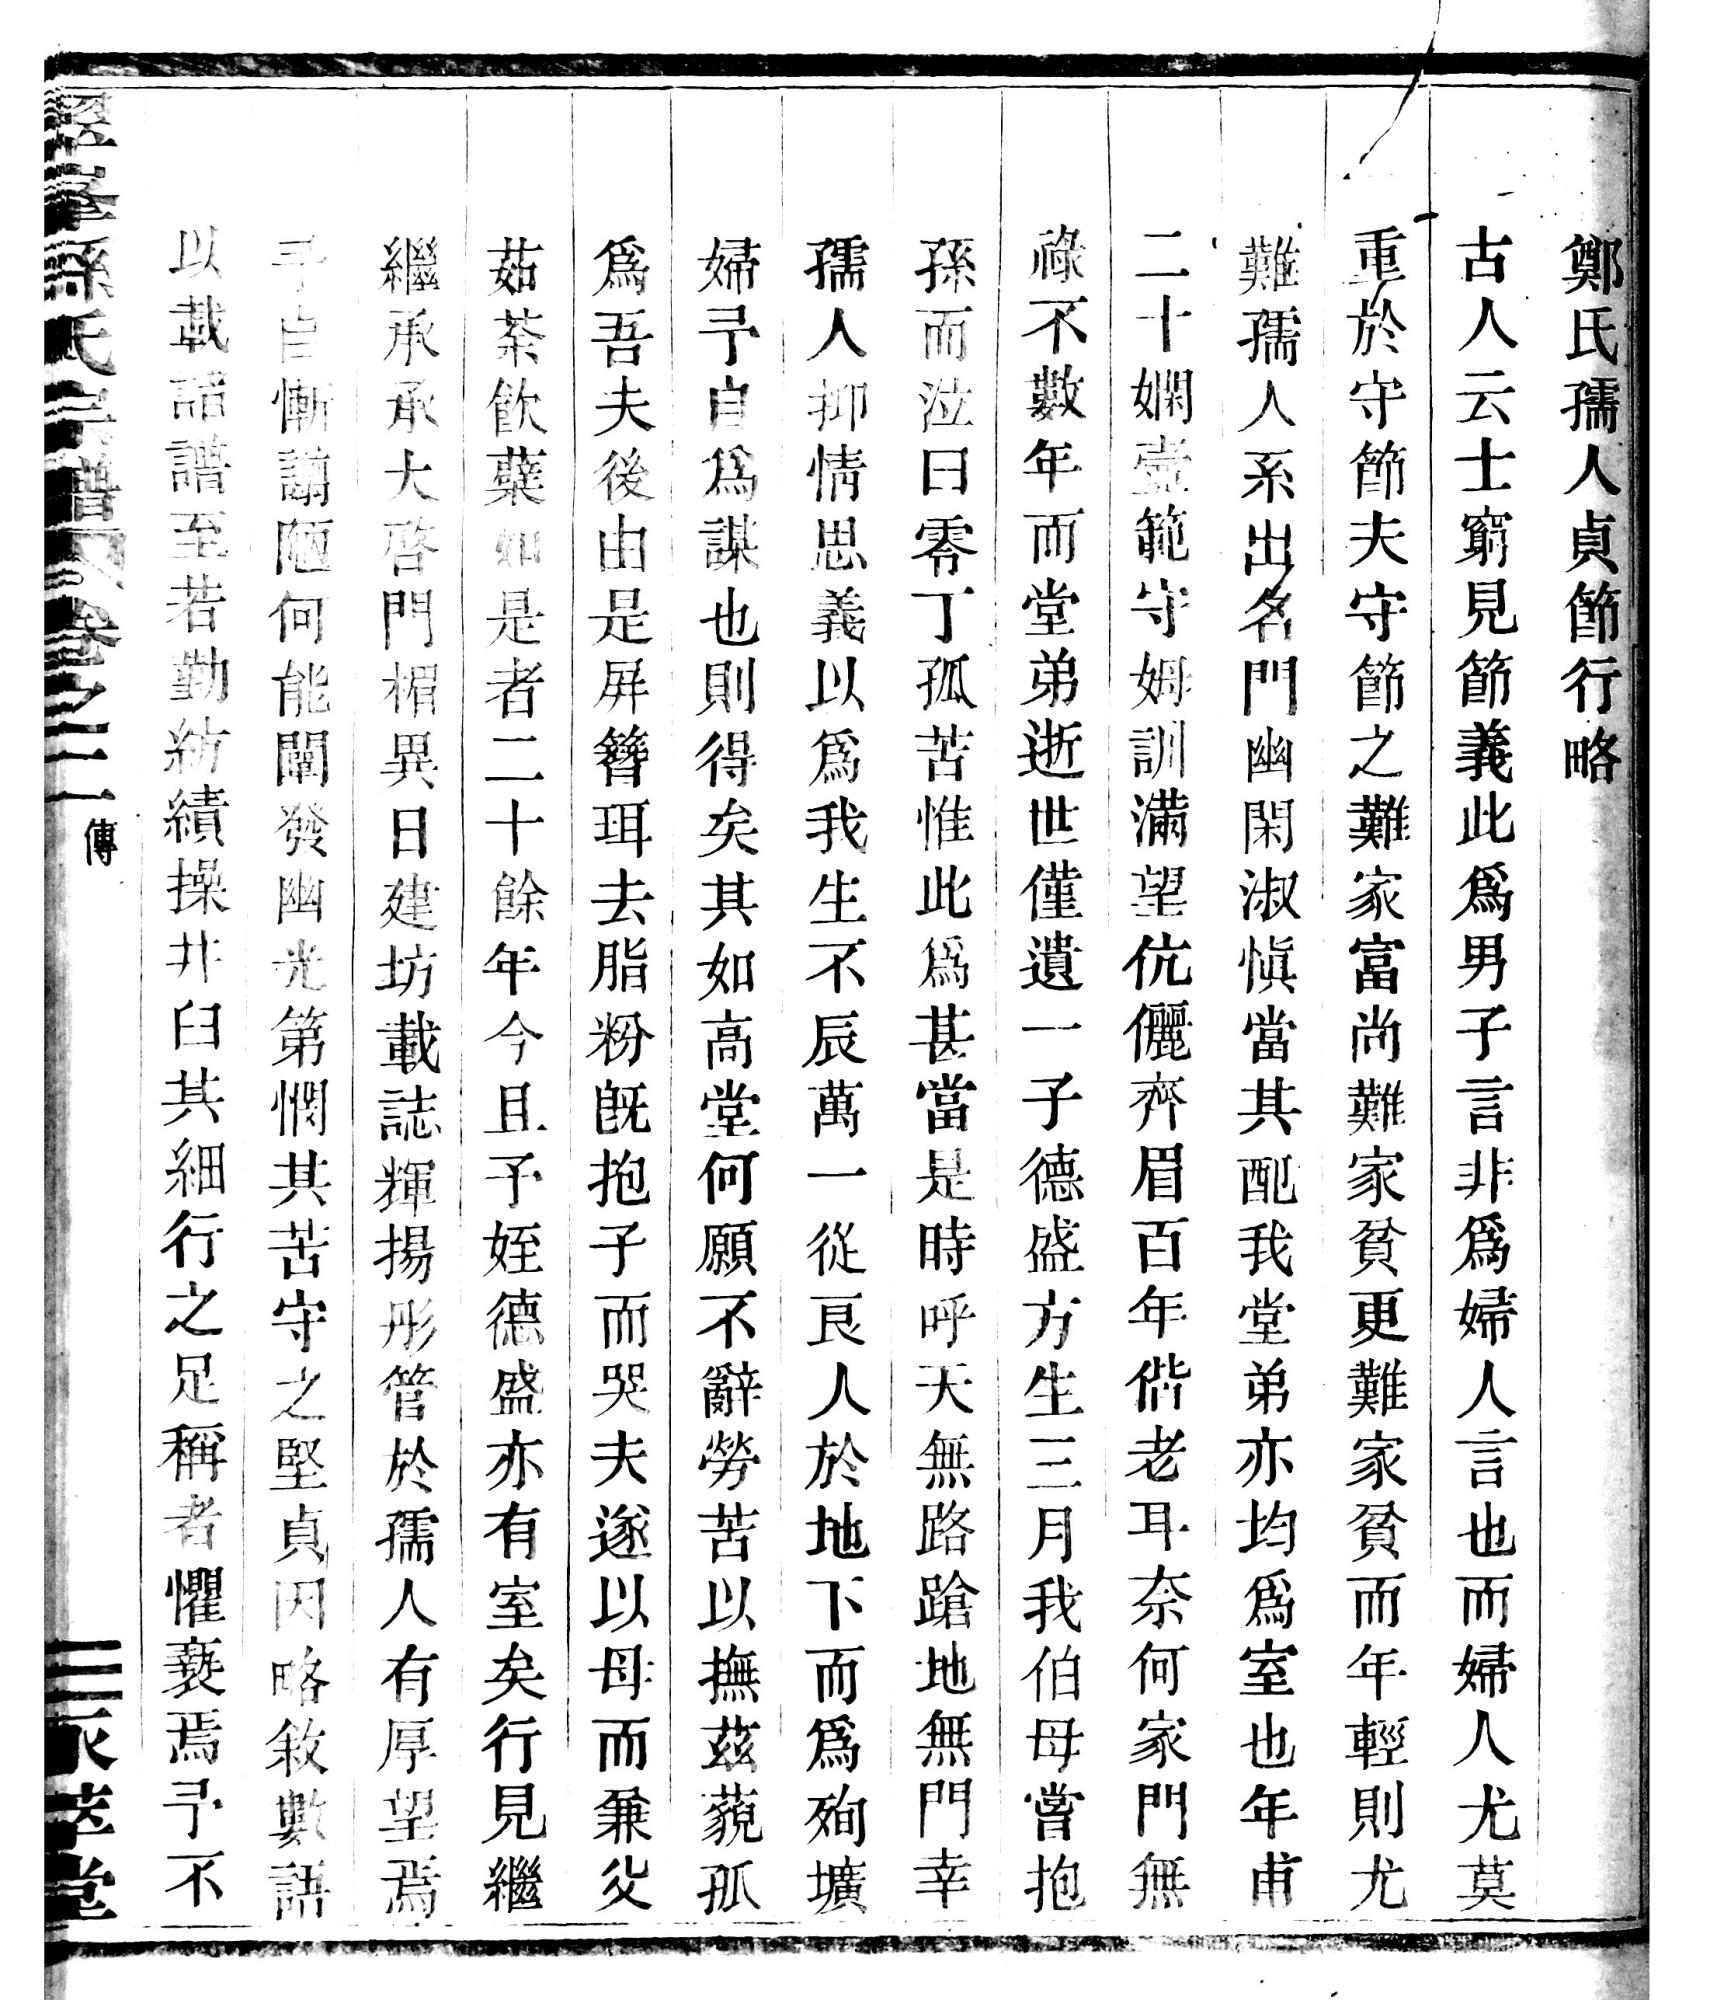 鄭氏孺人貞節行略
古人云士窮見節義此爲男子言非爲婦人言也而婦人尤莫
重於守節夫守節之難家富尚難家貧更難家貧而年輕則尤
難孺人系出名門幽閑淑愼當其配我堂弟亦均爲室也年甫
二十嫻壼範守姆訓滿望伉儷齊眉百年偕老耳奈何家門無
祿不數年而堂弟逝世僅遺一子德盛方生三月我伯母嘗抱
孫而泣曰零丁孤苦惟此爲甚當是時呼天無路蹌地無門幸
孺人抑情思義以爲我生不辰萬一從良人於地下而爲殉壙
婦予自爲謀也則得矣其如高堂何願不辭勞苦以撫茲藐孤
爲吾夫後由是屏簪珥去脂粉旣抱子而哭夫遂以母而兼父
茹荼飲蘗如是者二十餘年今且予姪德盛亦有室矣行見繼
繼承承大啓門楣異日建坊載誌輝揚彤管於孺人有厚望焉
予自慚譾陋何能闡發幽光第憫其苦守之堅貞因略敘數語
以載諸譜至若勤紡績操井臼其細行之足稱者懼褻焉予不
孫氏宗譜 卷之二 傳 三 堂